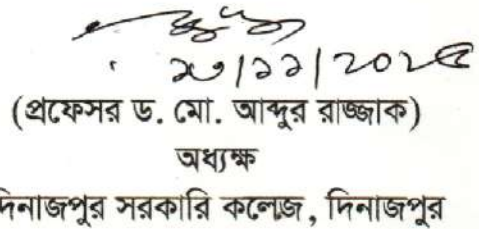 /১১/২০২৫
(প্রফেসর ড. মো. আব্দুর রাজ্জাক)
অধ্যক্ষ
দিনাজপুর সরকারি কলেজ, দিনাজপুর